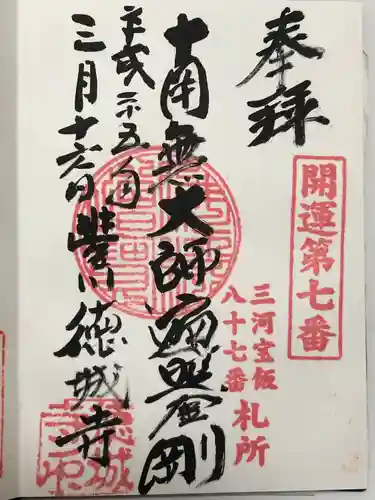 奉拝
開運第七番
三河宝飯
八十七番
札所
南無大師遍照金剛
平成二十五年
三月十六日
豊川
徳城寺